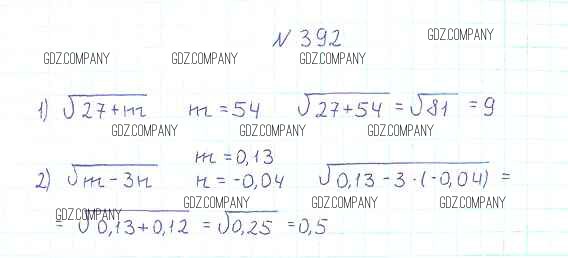 N 392
GDZ.COMPANY
GDZ.COMPANY GDZ.COMPANY GDZ.COMPANY
1) √27+m m = 54 √27+54 = √81 = 9
GDZ.COMPANY GDZ.COMPANY GDZ.COMPANY
m = 0,13
2) √m - 3n n = -0,04 √0,13 - 3 · (-0,04) =
GDZ.COMPANY GDZ.COMPANY GDZ.COMPANY
= √0,13+0,12 = √0,25 = 0,5